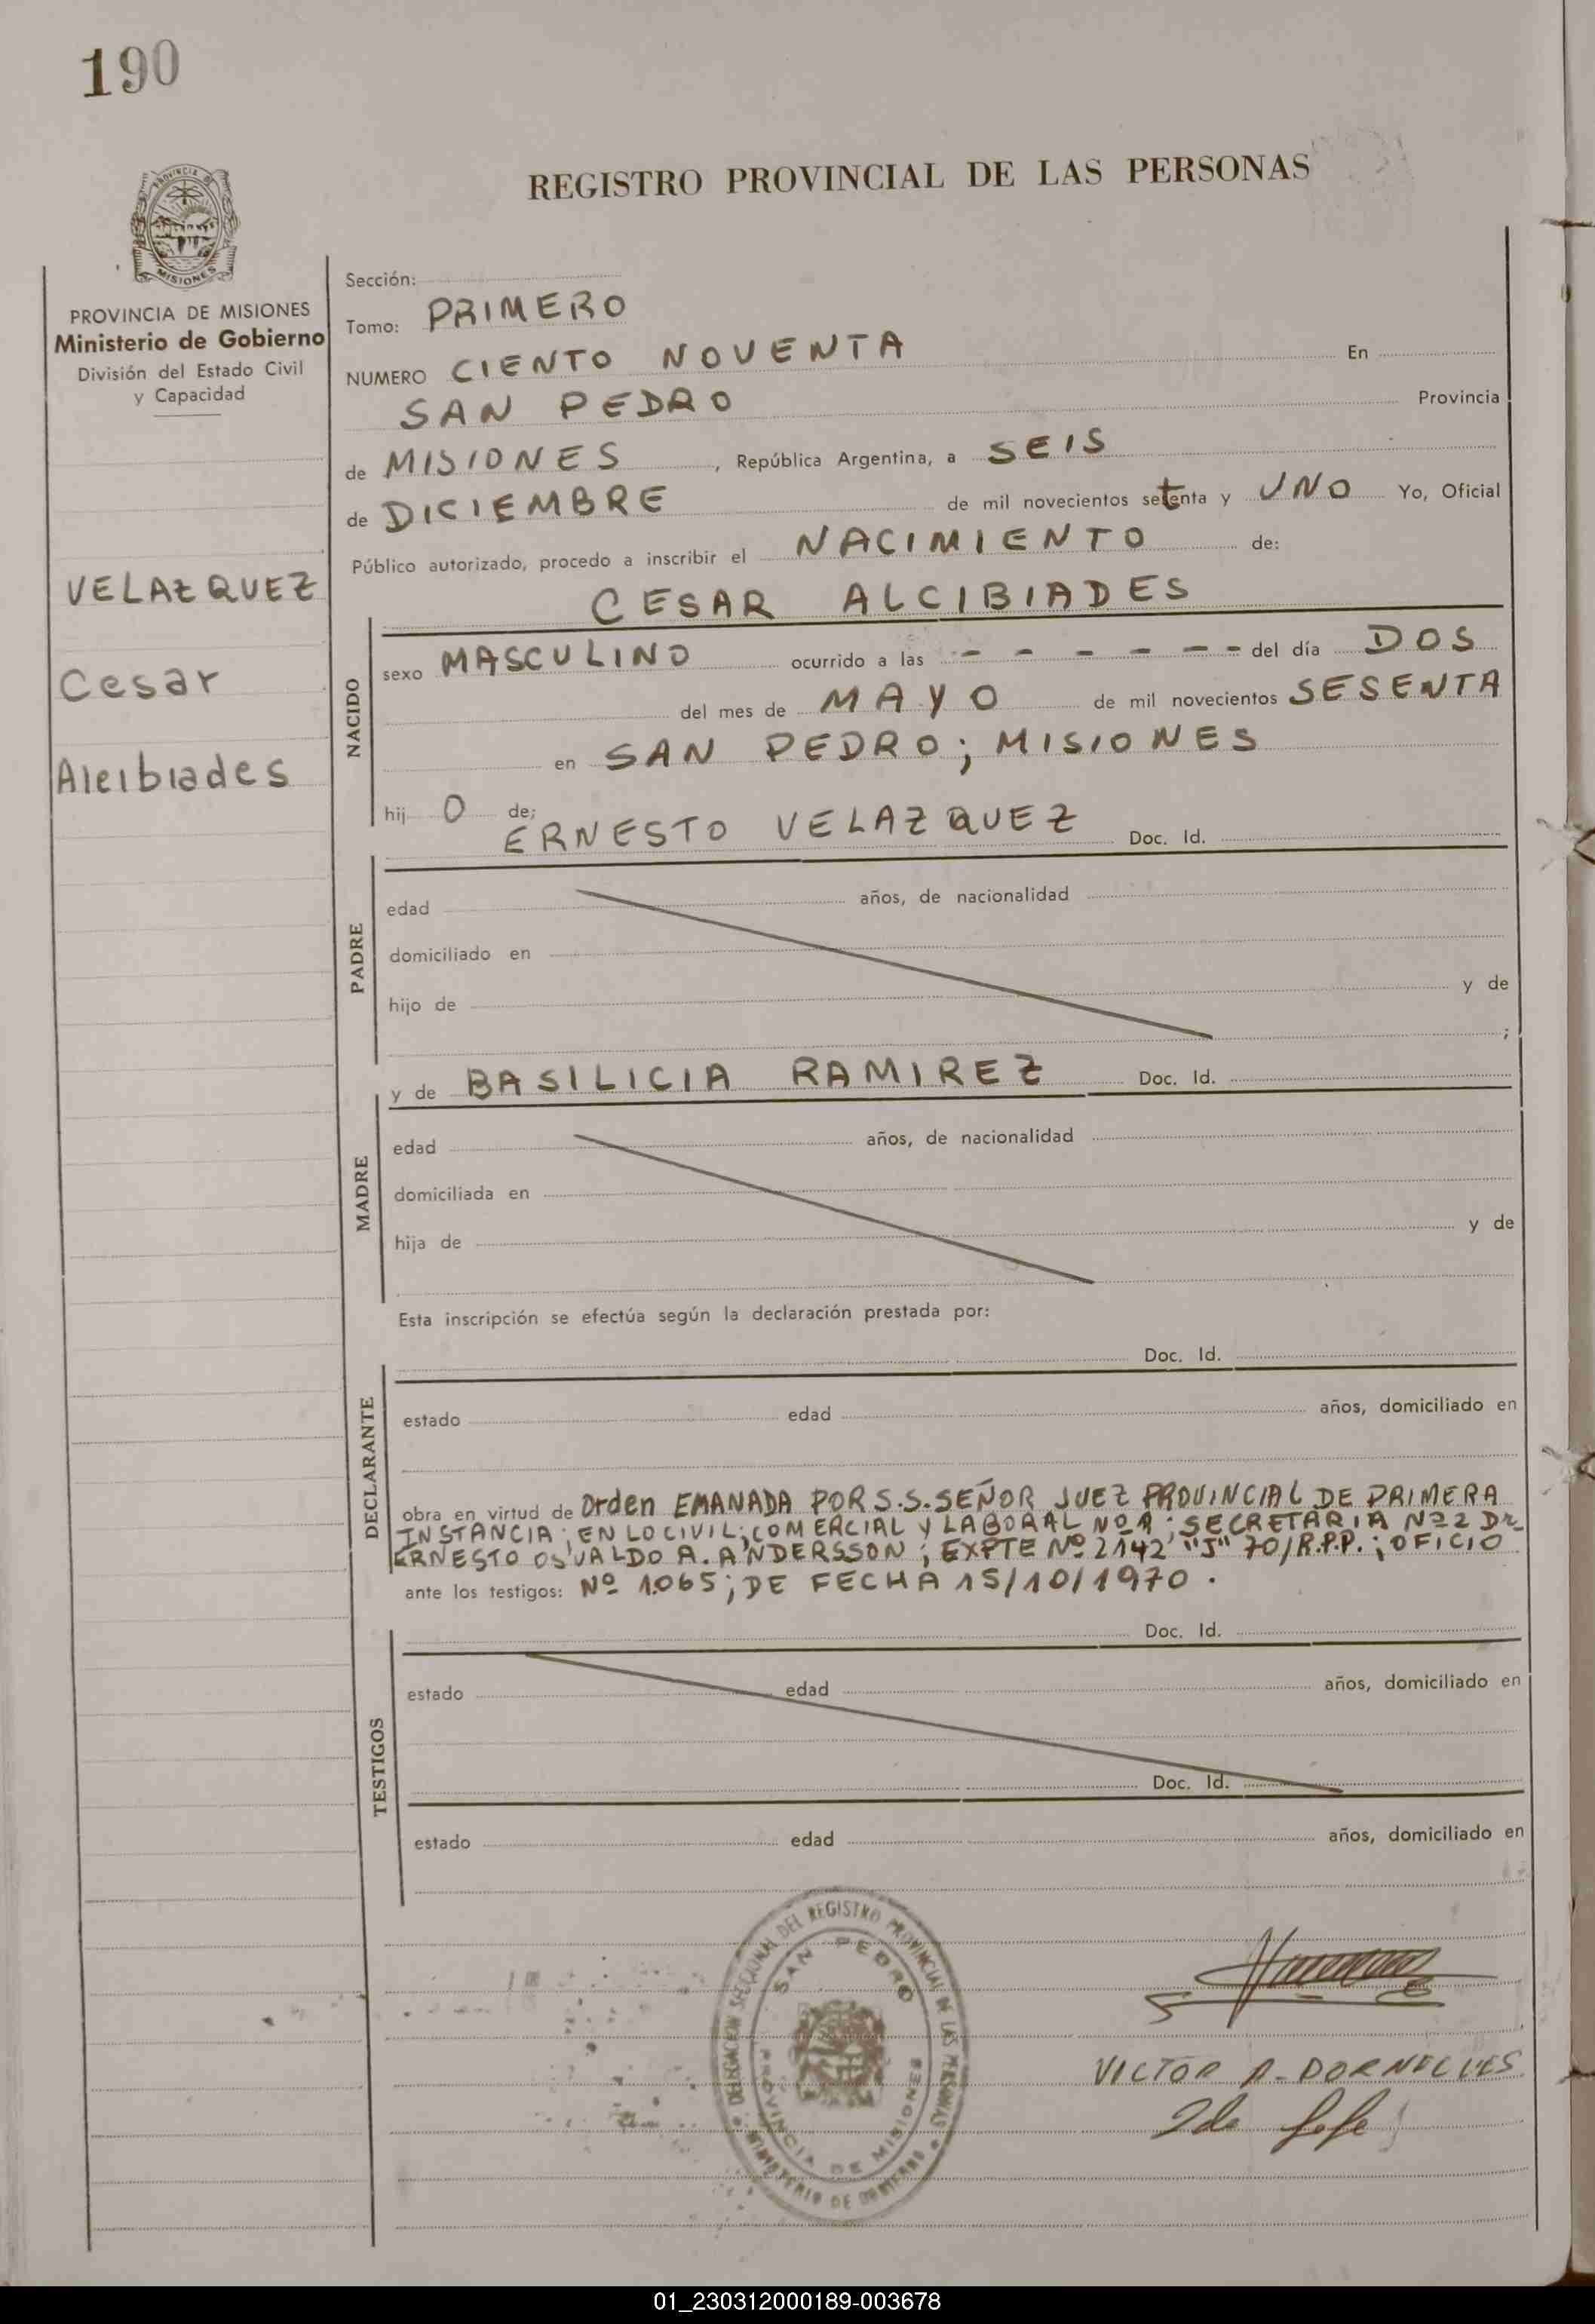 190
REGISTRO PROVINCIAL DE LAS PERSONAS
PROVINCIA DE
MISIONES
PROVINCIA DE MISIONES
Ministerio de Gobierno
División del Estado Civil
y Capacidad
VELAZQUEZ
Cesar
Alcibiades
Sección:
Tomo: PRIMERO
NUMERO CIENTO NOVENTA En
SAN PEDRO Provincia
de MISIONES, República Argentina, a SEIS
de DICIEMBRE de mil novecientos setenta y UNO Yo, Oficial
Público autorizado, procedo a inscribir el NACIMIENTO de:
CESAR ALCIBIADES
NACIDO
sexo MASCULINO ocurrido a las - - - - - - del día DOS
del mes de MAYO de mil novecientos SESENTA
en SAN PEDRO; MISIONES
hij O de;
ERNESTO VELAZQUEZ Doc. Id.
PADRE
edad años, de nacionalidad
domiciliado en
hijo de y de
;
y de BASILICIA RAMIREZ Doc. Id.
MADRE
edad años, de nacionalidad
domiciliada en
hija de y de
Esta inscripción se efectúa según la declaración prestada por:
Doc. Id.
DECLARANTE
estado edad años, domiciliado en
obra en virtud de Orden EMANADA POR S.S. SEÑOR JUEZ PROVINCIAL DE PRIMERA
INSTANCIA; EN LO CIVIL; COMERCIAL Y LABORAL Nº 1; SECRETARIA Nº 2 Dr
ERNESTO OSVALDO A. ANDERSSON; EXPTE Nº 2142 "J" 70/R.P.P.; OFICIO
ante los testigos: Nº 1.065; DE FECHA 15/10/1970.
Doc. Id.
TESTIGOS
estado edad años, domiciliado en
Doc. Id.
estado edad años, domiciliado en
DELEGACION SECCIONAL DEL REGISTRO PROVINCIAL DE LAS PERSONAS
SAN PEDRO
PROVINCIA DE MISIONES
MINISTERIO DE GOBIERNO
VICTOR A.
2do Jefe
01_230312000189-003678